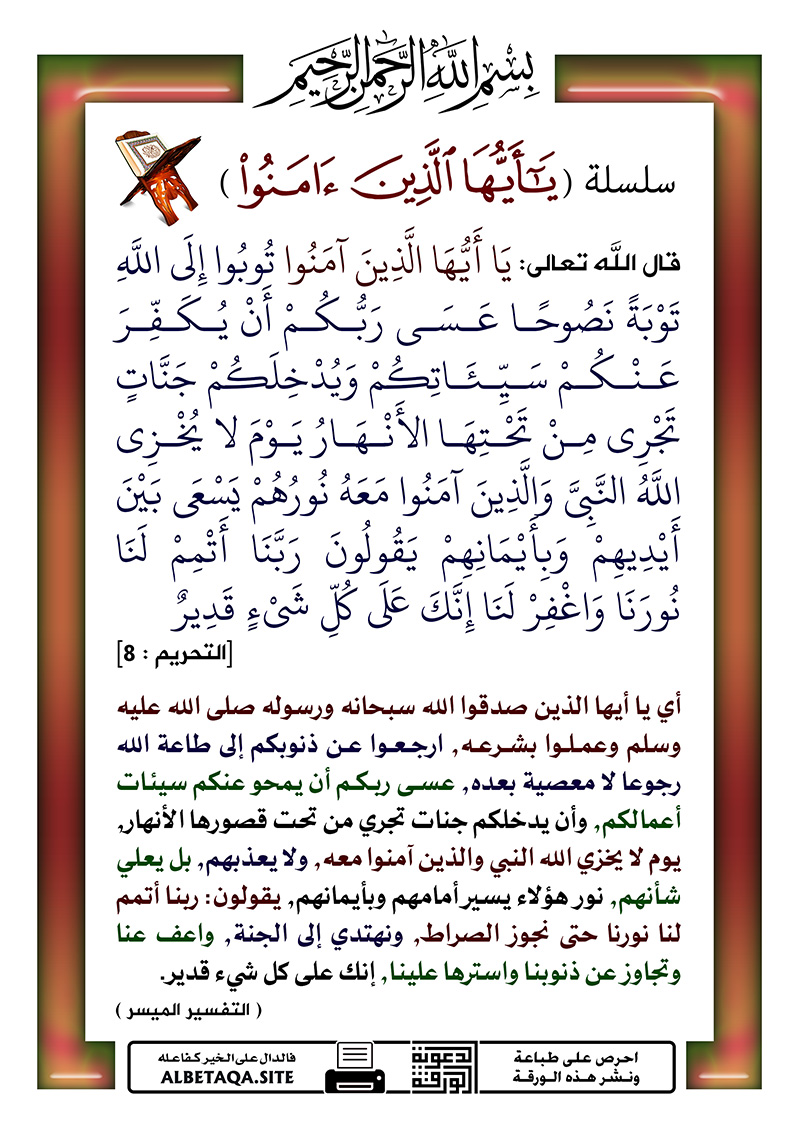 بِسْمِ اللَّهِ الرَّحْمَٰنِ الرَّحِيمِ
سلسلة (يَٰٓأَيُّهَا ٱلَّذِينَ ءَامَنُوا۟)
قال الله تعالى: يَا أَيُّهَا الَّذِينَ آمَنُوا تُوبُوا إِلَى اللَّهِ
تَوْبَةً نَصُوحًا عَسَى رَبُّكُمْ أَنْ يُكَفِّرَ
عَنْكُمْ سَيِّئَاتِكُمْ وَيُدْخِلَكُمْ جَنَّاتٍ
تَجْرِي مِنْ تَحْتِهَا الأَنْهَارُ يَوْمَ لا يُخْزِي
اللَّهُ النَّبِيَّ وَالَّذِينَ آمَنُوا مَعَهُ نُورُهُمْ يَسْعَى بَيْنَ
أَيْدِيهِمْ وَبِأَيْمَانِهِمْ يَقُولُونَ رَبَّنَا أَتْمِمْ لَنَا
نُورَنَا وَاغْفِرْ لَنَا إِنَّكَ عَلَى كُلِّ شَيْءٍ قَدِيرٌ
[التحريم : 8]
أي يا أيها الذين صدقوا الله سبحانه ورسوله صلى الله عليه
وسلم وعملوا بشرعه, ارجعوا عن ذنوبكم إلى طاعة الله
رجوعا لا معصية بعده, عسى ربكم أن يمحو عنكم سيئات
أعمالكم, وأن يدخلكم جنات تجري من تحت قصورها الأنهار,
يوم لا يخزي الله النبي والذين آمنوا معه, ولا يعذبهم, بل يعلي
شأنهم, نور هؤلاء يسير أمامهم وبأيمانهم, يقولون: ربنا أتمم
لنا نورنا حتى نجوز الصراط, ونهتدي إلى الجنة, واعف عنا
وتجاوز عن ذنوبنا واسترها علينا, إنك على كل شيء قدير.
( التفسير الميسر )
احرص على طباعة
ونشر هذه الورقة
الورقة
الدعوية
فالدال على الخير كفاعله
ALBETAQA.SITE